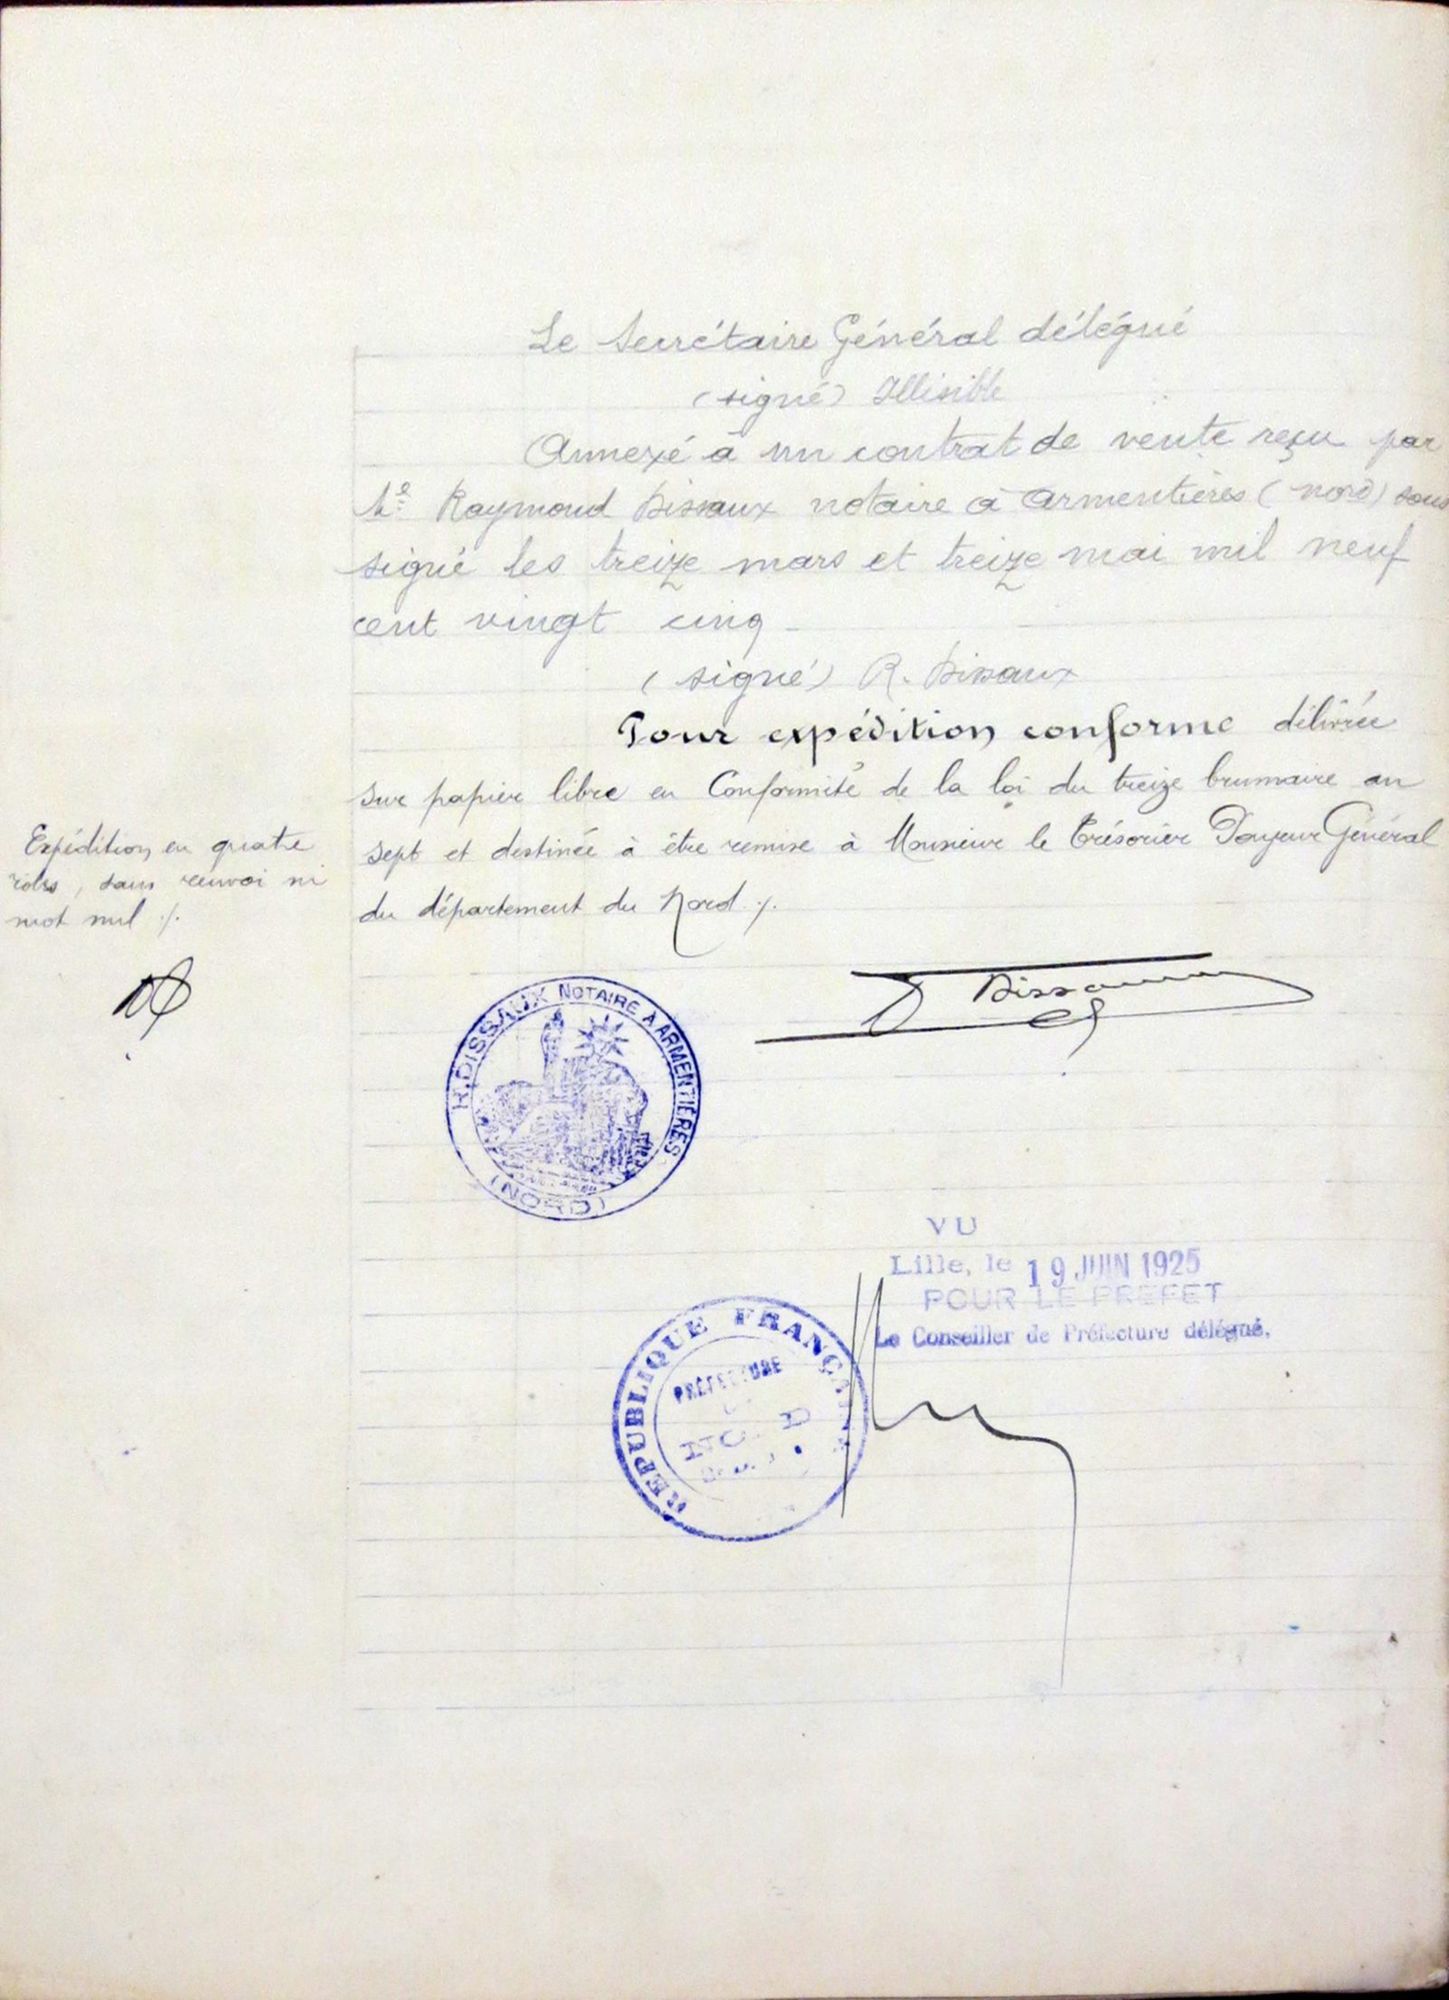 Le Secrétaire Général délégué
(signé) Illisible
Annexé à un contrat de vente reçu par
Me Raymond Dissaux notaire à Armentières (Nord) sous
signé les treize mars et treize mai mil neuf
cent vingt cinq
(signé) R. Dissaux
Pour expédition conforme délivrée
sur papier libre en Conformité de la loi du treize brumaire an
sept et destinée à être remise à Monsieur le Trésorier Payeur Général
du département du Nord ./.
Expédition en quatre
rôles, sans renvoi ni
mot nul ./.
Dissaux
R. DISSAUX NOTAIRE A ARMENTIÈRES
(NORD)
VU
Lille, le 19 JUIN 1925
POUR LE PREFET
Le Conseiller de Préfecture délégué,
REPUBLIQUE FRANÇAISE
PREFECTURE
NORD